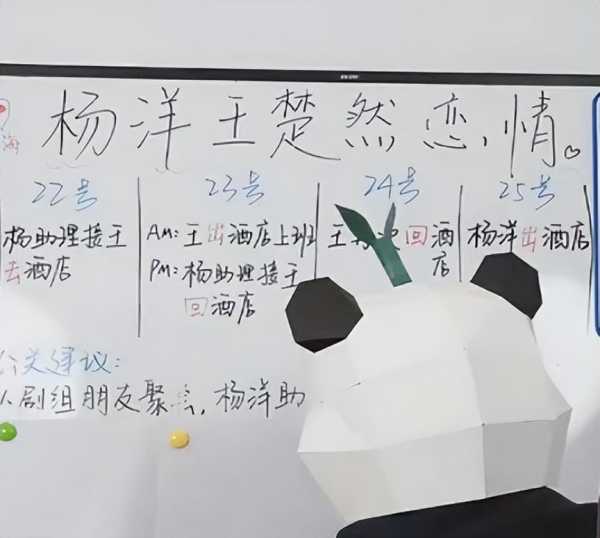 海
杨洋王楚然恋情。
22号
杨助理接王
去酒店
23号
AM: 王出酒店上班
PM: 杨助理接王
回酒店
24号
王 回酒
店
25号
杨洋出酒店
公关建议:
剧组朋友聚 , 杨洋助